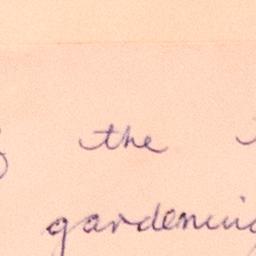 the
gardening